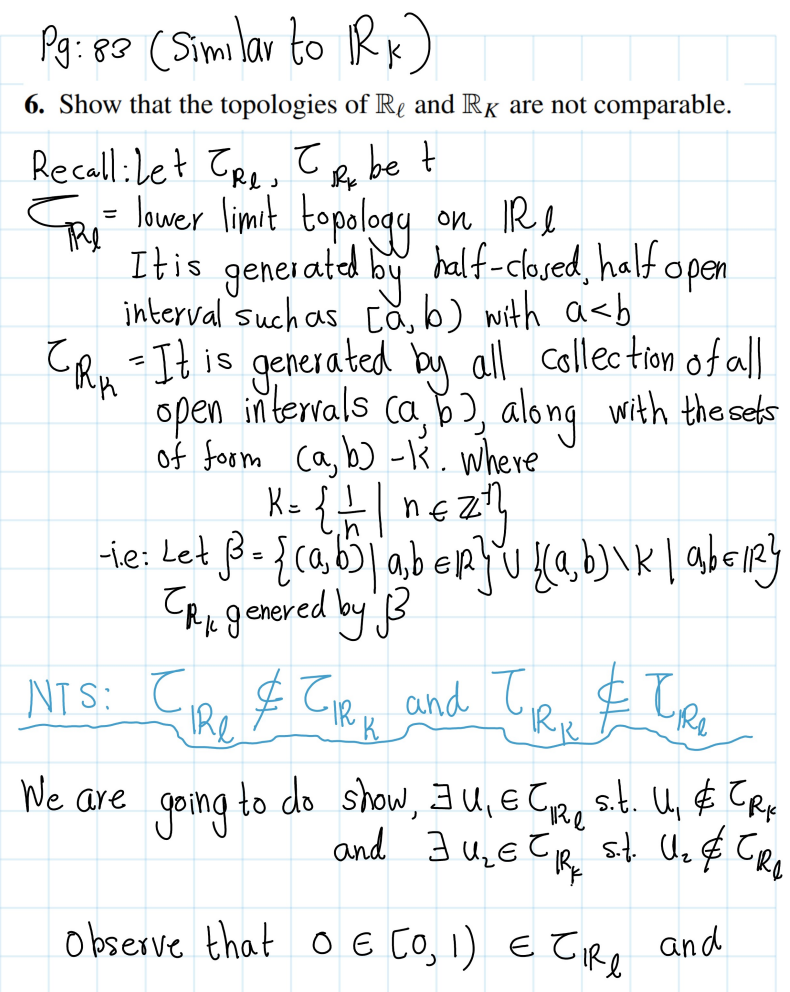 Pg: 83 (Similar to ℝ_K)
6. Show that the topologies of ℝ_ℓ and ℝ_K are not comparable.
Recall: Let τ_ℝℓ, τ_ℝK be t
τ_ℝℓ = lower limit topology on ℝℓ
It is generated by half-closed, half open
interval such as [a, b) with a<b
τ_ℝK = It is generated by all collection of all
open intervals (a, b), along with the sets
of form (a, b) - K. Where
K = { 1/n | n ∈ ℤ⁺}
-i.e: Let β = {(a,b) | a,b ∈ ℝ} ∪ {(a,b)\K | a,b ∈ ℝ}
τ_ℝK genered by β
NTS: τ_ℝℓ ⊄ τ_ℝK and τ_ℝK ⊄ τ_ℝℓ
We are going to do show, ∃ U₁ ∈ τ_ℝℓ s.t. U₁ ∉ τ_ℝK
and ∃ U₂ ∈ τ_ℝK s.t. U₂ ∉ τ_ℝℓ
Observe that 0 ∈ [0, 1) ∈ τ_ℝℓ and